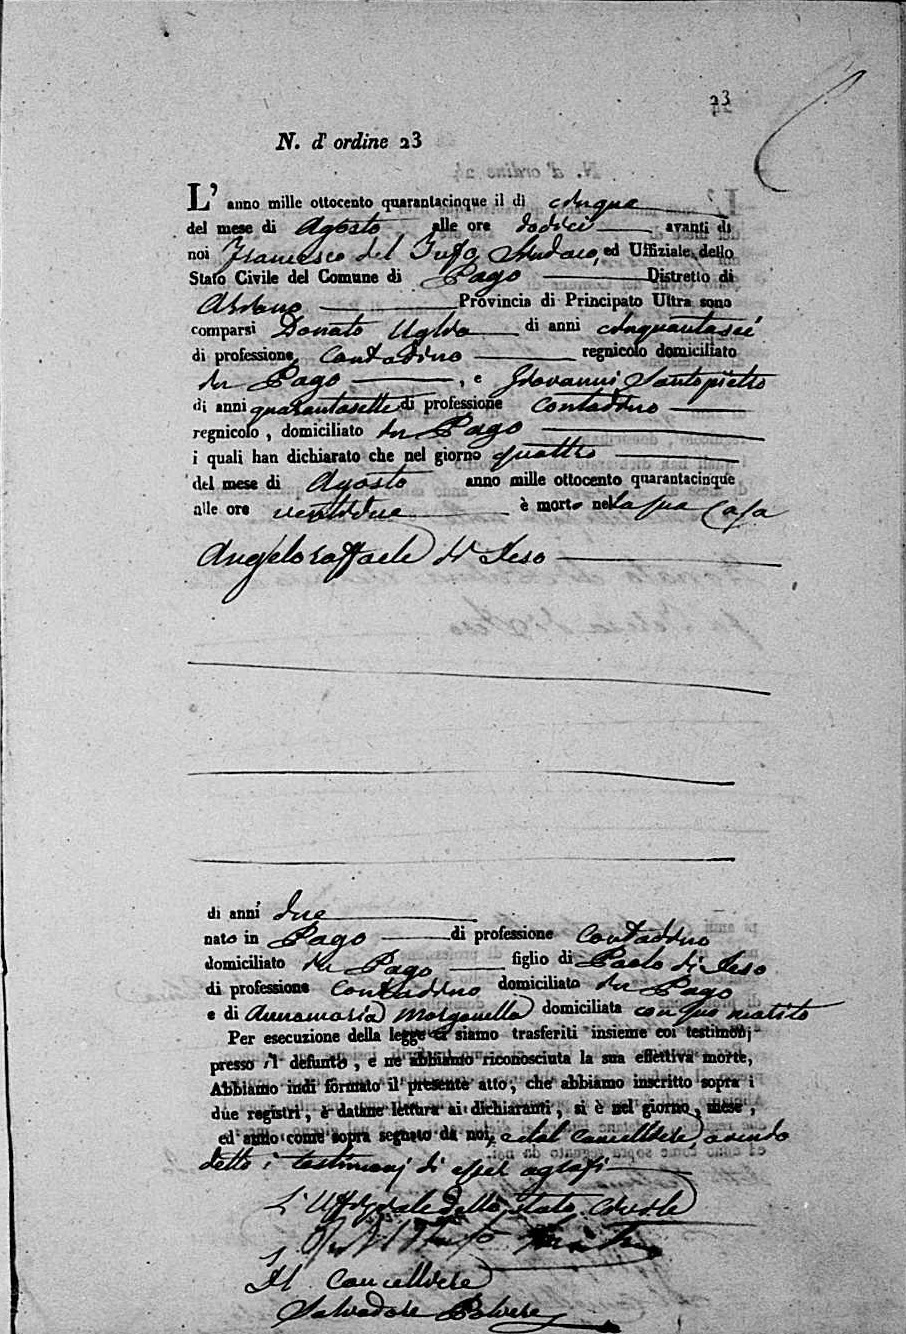 23
N. d' ordine 23
L' anno mille ottocento quarantacinque il di cinque
del mese di Agosto alle ore dodici avanti di
noi Francesco del Tufo, Sindaco, ed Uffiziale dello
Stato Civile del Comune di Pago Distretto di
Provincia di Principato Ultra sono
comparsi Donato Uglia di anni cinquantasei
di professione Contadino regnicolo domiciliato
in Pago , e Giovanni Santopietro
di anni quarantasette di professione contadino
regnicolo , domiciliato in Pago
i quali han dichiarato che nel giorno quattro
del mese di Agosto anno mille ottocento quarantacinque
alle ore ventidue è morto nella sua Casa
Angeloraffaele di Ieso
di anni due
nato in Pago di professione Contadino
domiciliato in Pago figlio di Paolo di Ieso
di professione Contadino domiciliato in Pago
e di Annamaria Morganella domiciliata con suo marito
Per esecuzione della legge ci siamo trasferiti insieme coi testimonj
presso il defunto , e ne abbiamo riconosciuta la sua effettiva morte,
Abbiamo indi formato il presente atto , che abbiamo inscritto sopra i
due registri , è datane lettura ai dichiaranti , si è nel giorno , mese ,
ed anno come sopra segnato da noi, e dal cancelliere, avendo
detto i testimonj di esser
L'Uffiziale dello stato civile
Il Cancelliere
Salvadore Polvere